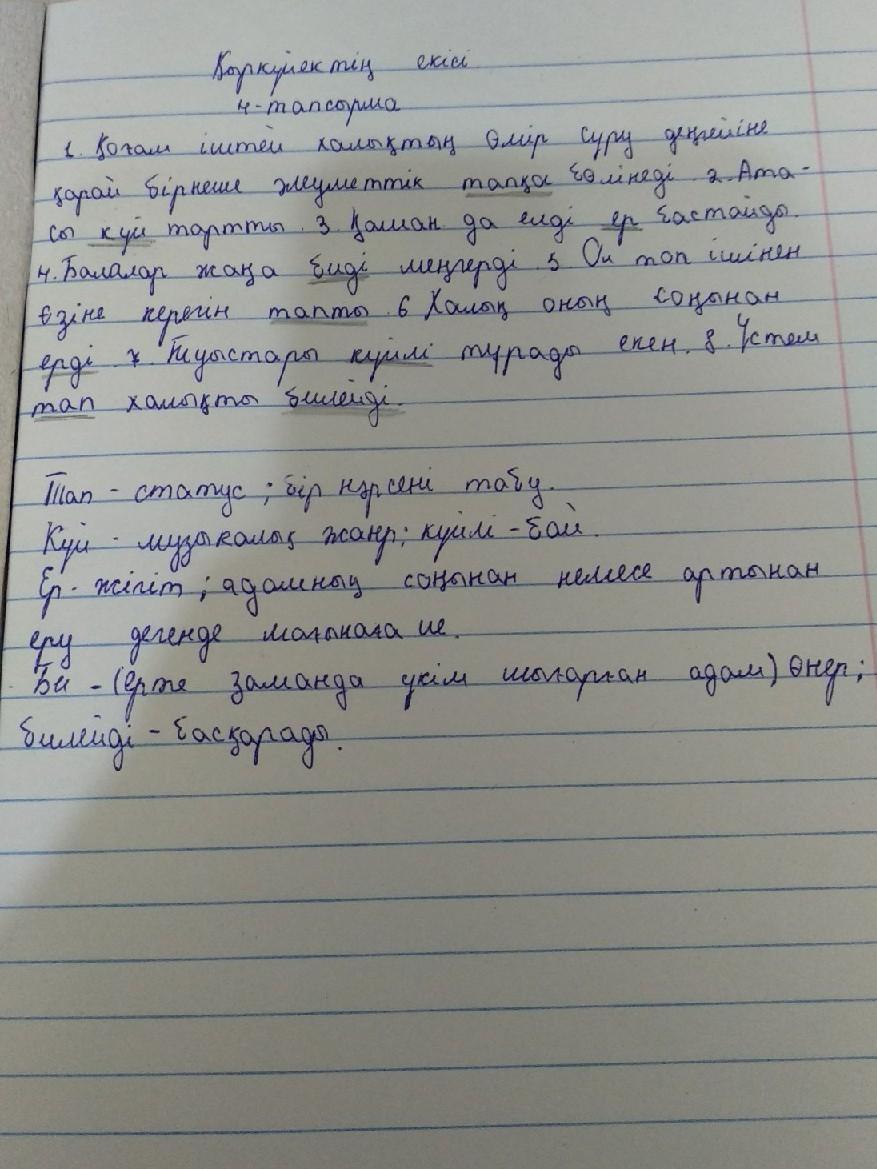 Қыркүйектің екісі
4-тапсырма
1. Қоғам іштей халықтың өмір сүру деңгейіне
қарай бірнеше әлеуметтік тапқа бөлінеді 2. Ата-
сы күй тартты. 3 Қашан да елді ер бастайды.
4. Балалар жаңа биді меңгерді 5 Ол топ ішінен
өзіне керегін тапты 6 Халық оның соңынан
ерді 7. Туыстары күйлі тұрады екен. 8. Үстем
тап халықты билейді.
Тап - статус; бір нәрсені табу.
Күй - музыкалық жанр; күйлі - бай.
Ер - жігіт; адамның соңынан немесе артынан
еру дегенде мағынаға ие.
Би - (ерте заманда үкім шығарған адам) өнер;
билейді - басқарады.